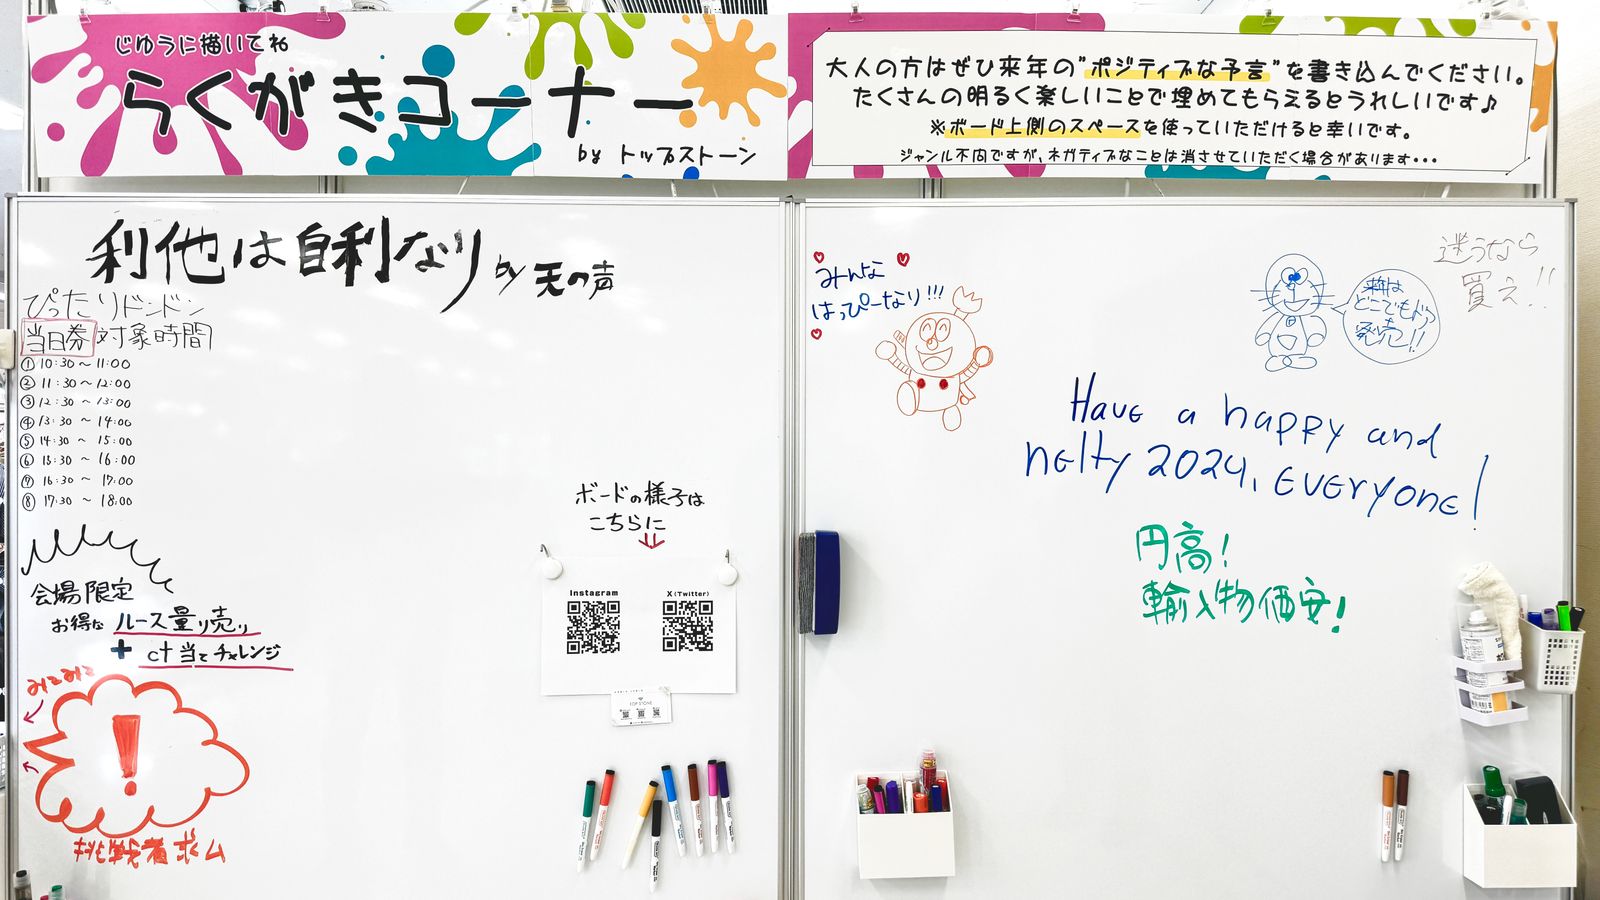 じゆうに描いてね
らくがきコーナー
by トップストーン
大人の方はぜひ来年の"ポジティブな予言"を書き込んでください。
たくさんの明るく楽しいことで埋めてもらえるとうれしいです♪
※ボード上側のスペースを使っていただけると幸いです。
ジャンル不問ですが、ネガティブなことは消させていただく場合があります・・・
利他は自利なり by 天の声
ぴったりドンドン
当日券対象時間
① 10:30 ~ 11:00
② 11:30 ~ 12:00
③ 12:30 ~ 13:00
④ 13:30 ~ 14:00
⑤ 14:30 ~ 15:00
⑥ 15:30 ~ 16:00
⑦ 16:30 ~ 17:00
⑧ 17:30 ~ 18:00
会場限定
お得な ルース量り売り
+ ct当てチャレンジ
!
挑戦者求ム
ボードの様子は
こちらに
Instagram
X(Twitter)
TOP STONE
みんな
はっぴーなり!!!
来年は
どこでもドア
発売!!
迷うなら
買え!!
Have a happy and
helty 2024, everyone!
円高!
輸入物価安!